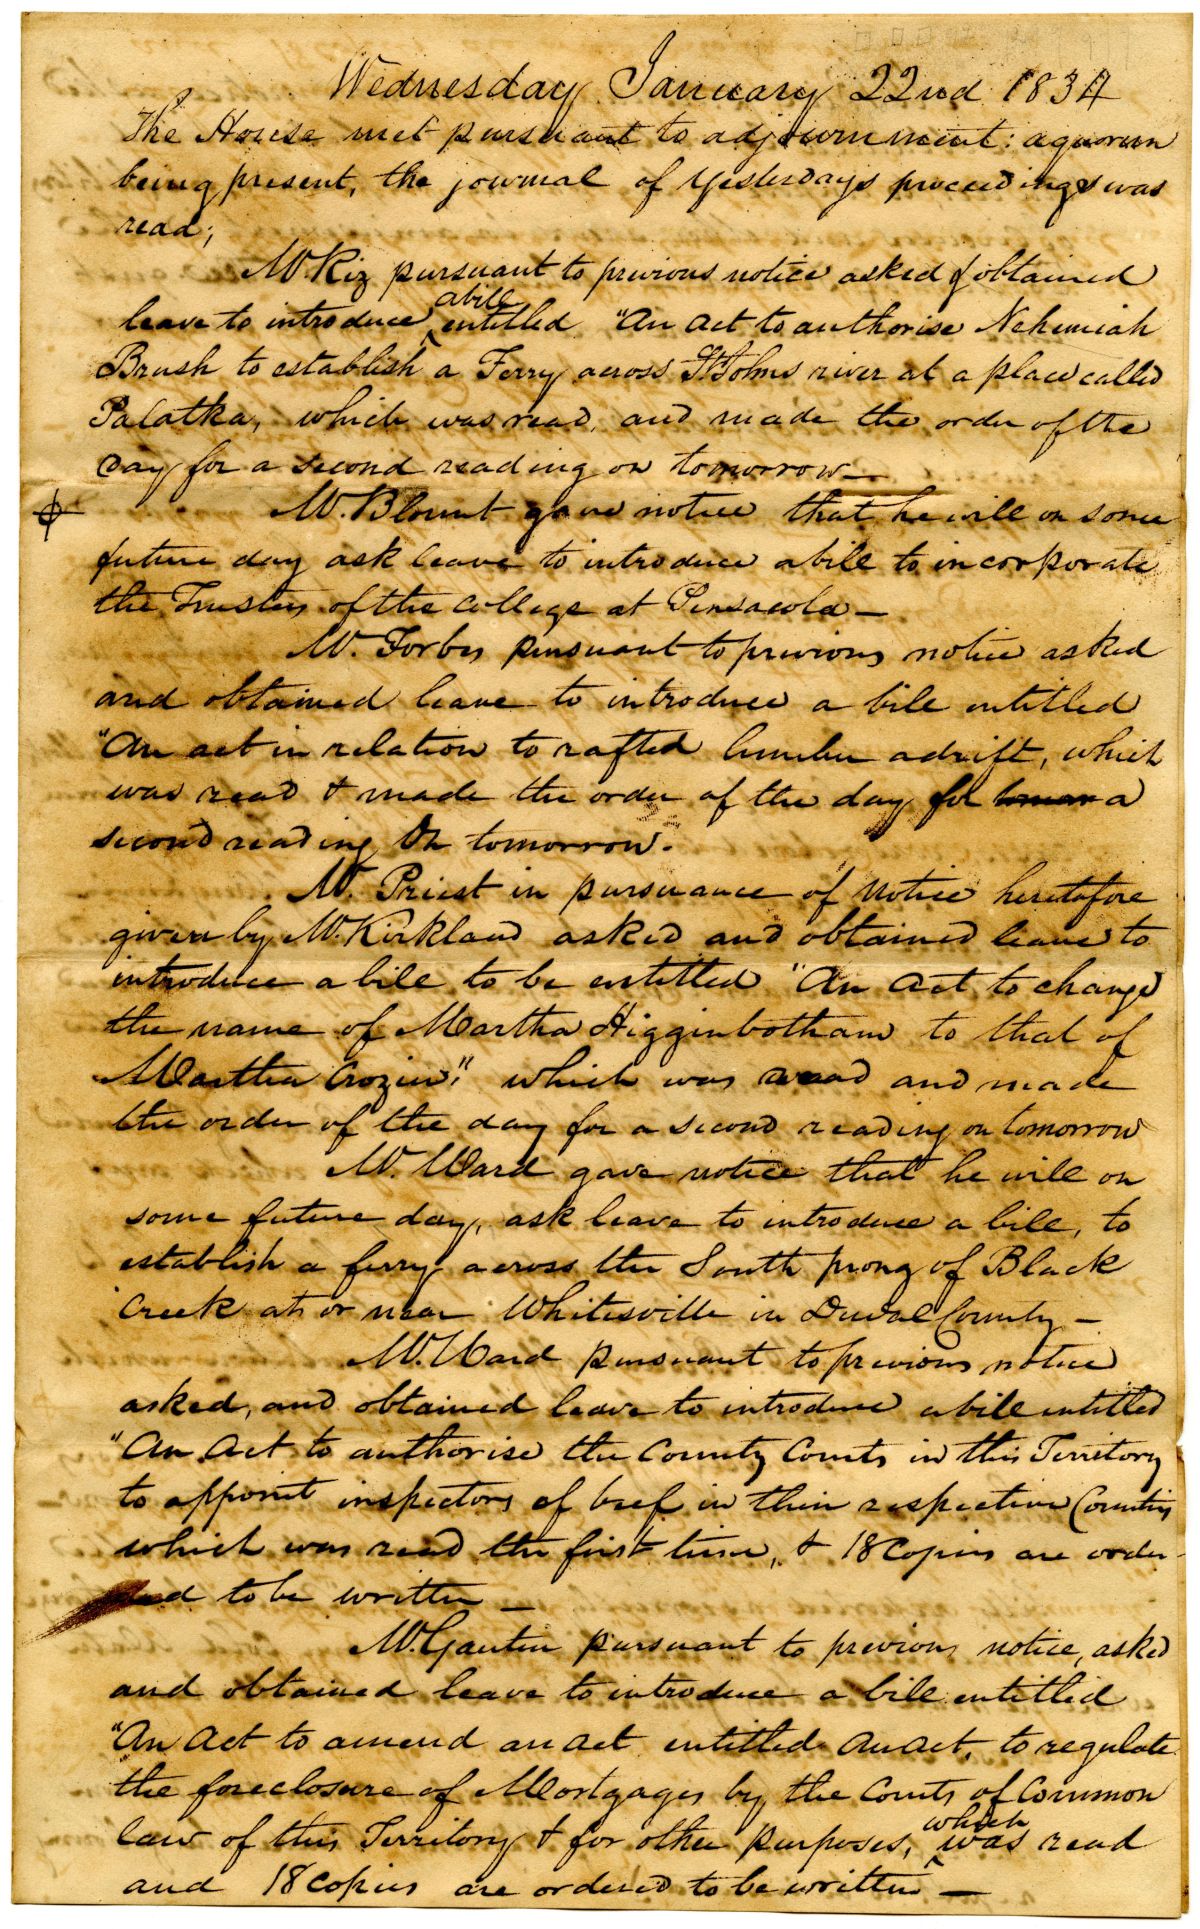 Wednesday January 22nd 1834
The House met pursuant to adjournment: a quorum
being present, the journal of yesterdays proceedings was
read;
Mr Riz pursuant to previous notice asked & obtained
leave to introduce a bill entitled "An Act to authorise Nehemiah
Brush to establish a Ferry across St Johns river at a place called
Palatka, which was read, and made the order of the
day for a second reading on tomorrow—
Mr. Blount gave notice that he will on some
future day ask leave to introduce a bill to incorporate
the Trustees of the College at Pensacola—
Mr. Forbes pursuant to previous notice asked
and obtained leave to introduce a bill entitled
"An act in relation to rafted lumber adrift, which
was read & made the order of the day for a
second reading On tomorrow.
Mr. Priest in pursuance of notice heretofore
given by Mr. Kirkland asked and obtained leave to
introduce a bill to be entitled "An Act to change
the name of Martha Higginbotham to that of
Martha Crozier;" which was read and made
the order of the day for a second reading on tomorrow
Mr. Ward gave notice that he will on
some future day, ask leave to introduce a bill, to
establish a ferry across the South prong of Black
Creek at or near Whitesville in Duval County—
Mr. Ward pursuant to previous notice
asked, and obtained leave to introduce a bill entitled
"An Act to authorise the County Courts in this Territory
to appoint inspectors of beef in their respective Counties
which was read the first time, & 18 Copies are order-
ed to be written—
Mr. Gautier pursuant to previous notice, asked
and obtained leave to introduce a bill entitled
"An Act to amend an act entitled An act, to regulate
the foreclosure of Mortgages by the Courts of Common
law of this Territory & for other purposes, which was read
and 18 Copies are ordered to be written—